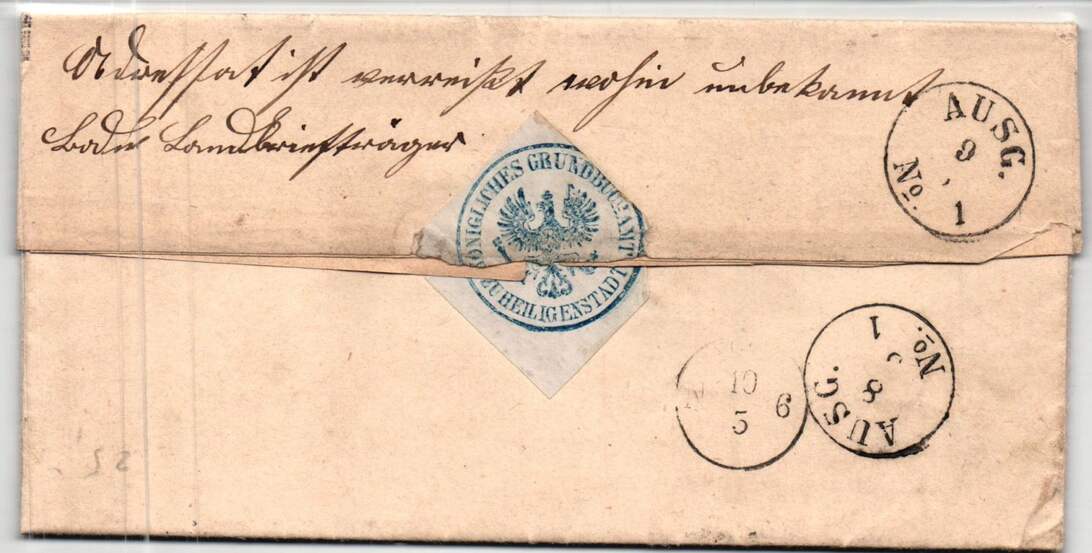 Adressat ist verreißt wohin unbekannt
Bode Landbriefträger
KÖNIGLICHES GRUNDBUCHAMT
ZU HEILIGENSTADT
AUSG.
9
No 1
10
5
6
AUSG.
8
No. 1
52